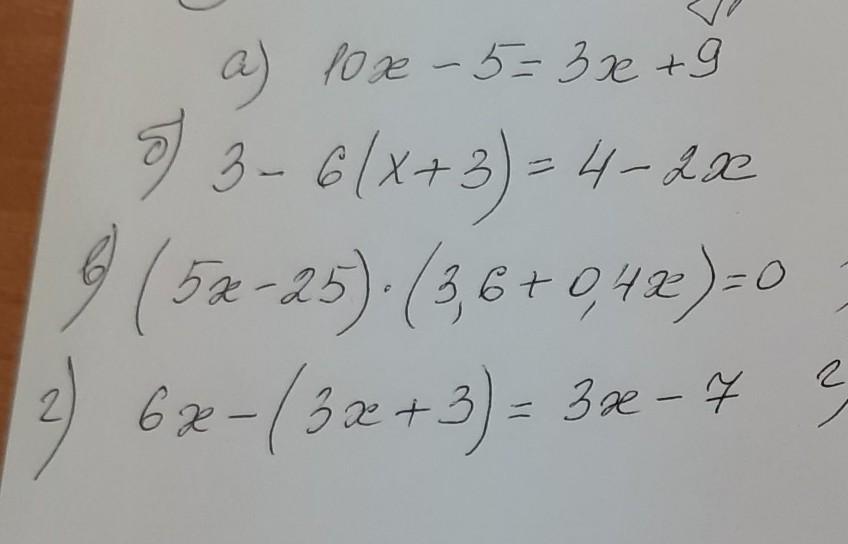 а) 10x - 5 = 3x + 9
б) 3 - 6(x + 3) = 4 - 2x
в) (5x - 25) · (3,6 + 0,4x) = 0
г) 6x - (3x + 3) = 3x - 7 г)